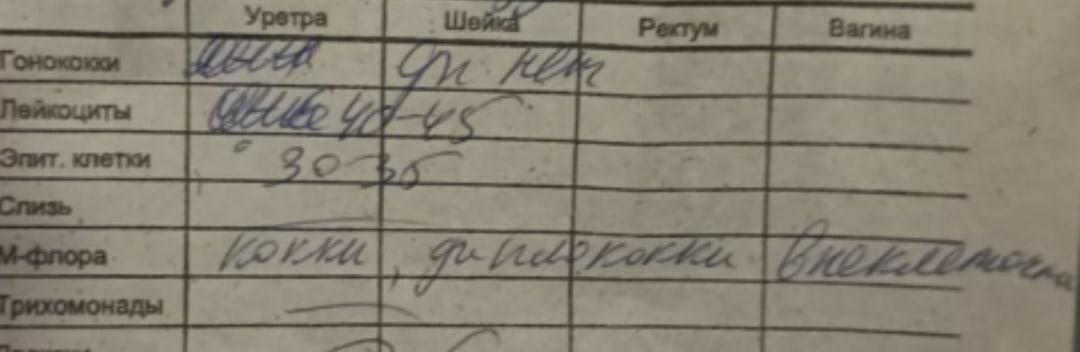 Уретра Шейка Ректум Вагина
Гонококки нет
Лейкоциты 40-45
Эпит. клетки 30-35
Слизь
М-флора кокки, диплококки внеклеточно
Трихомонады